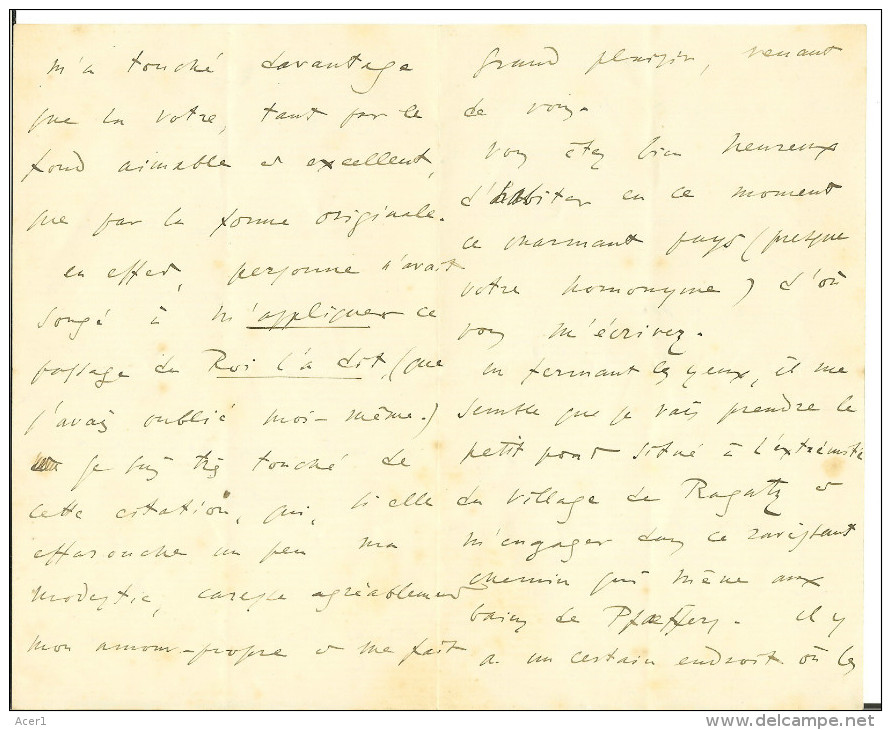 m'a touché davantage
que la votre, tant par le
fond aimable et excellent,
que par la forme originale.
en effet, personne n'avait
songé à m'appliquer ce
passage du Roi l'a dit, (que
j'avais oublié moi-même.)
je suis très touché de
cette citation, qui, si elle
effarouche un peu ma
modestie, caresse agréablement
mon amour-propre et me fait
grand plaisir, venant
de vous.
vous êtes bien heureux
d'habiter en ce moment
ce charmant pays (presque
votre homonyme) d'où
vous m'écrivez.
en fermant les yeux, il me
semble que je vais prendre le
petit pont situé à l'extrémité
du village de Ragatz et
m'engager dans ce ravissant
chemin qui mène aux
bains de Pfæffers. il y
a un certain endroit où les
Acer1
www.delcampe.net